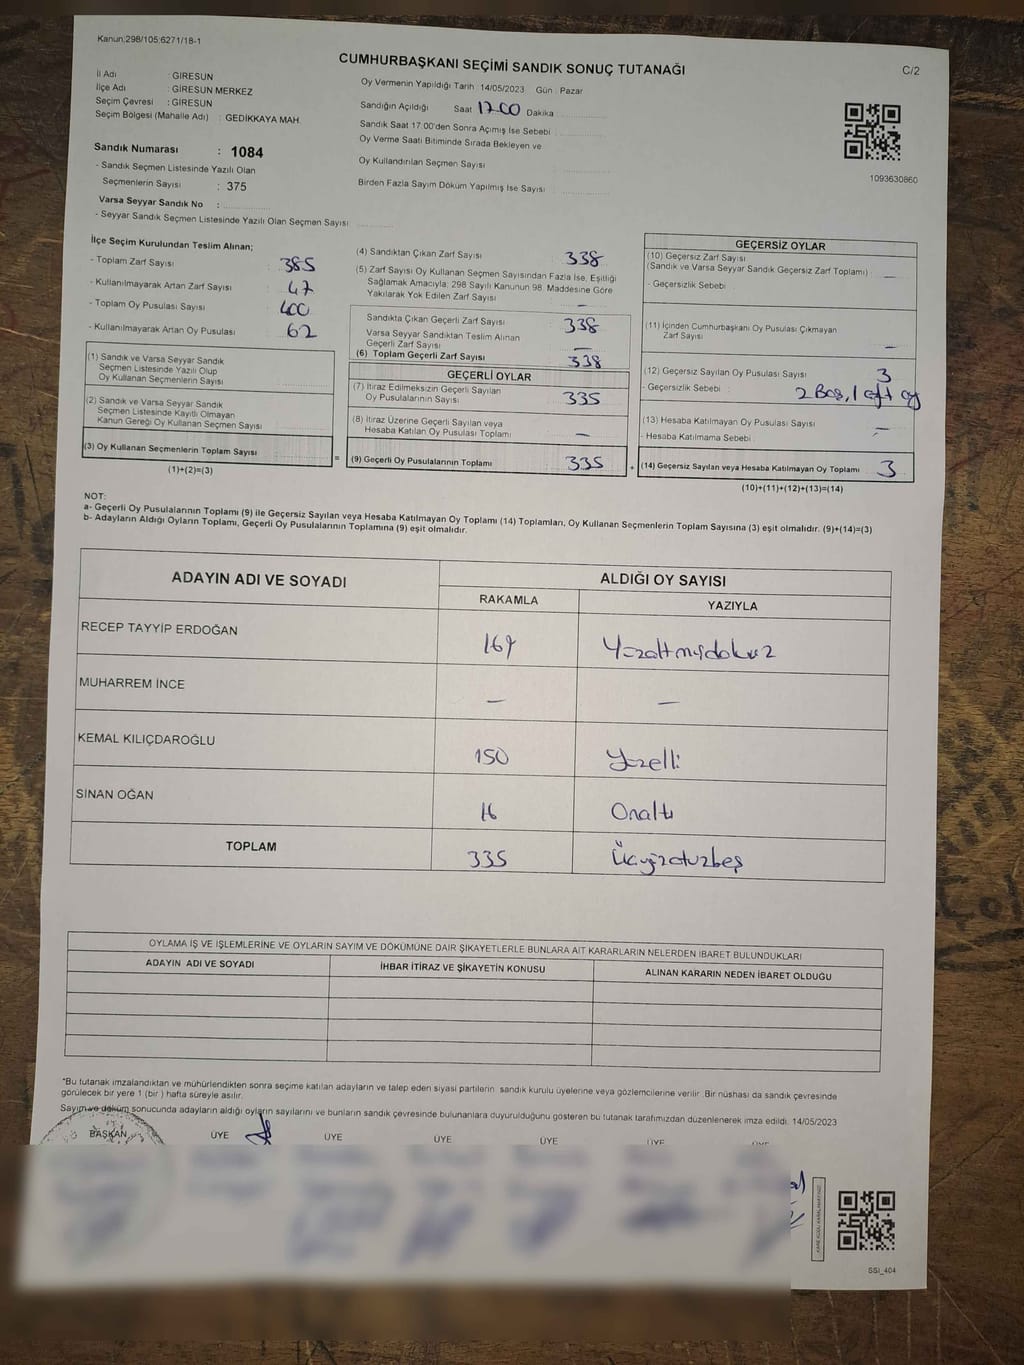 Kanun:298/105;6271/18-1
CUMHURBAŞKANI SEÇİMİ SANDIK SONUÇ TUTANAĞI
C/2
İl Adı : GİRESUN
İlçe Adı : GİRESUN MERKEZ
Seçim Çevresi : GİRESUN
Seçim Bölgesi (Mahalle Adı) : GEDİKKAYA MAH.
Sandık Numarası : 1084
- Sandık Seçmen Listesinde Yazılı Olan
Seçmenlerin Sayısı : 375
Varsa Seyyar Sandık No :
- Seyyar Sandık Seçmen Listesinde Yazılı Olan Seçmen Sayısı
Oy Vermenin Yapıldığı Tarih : 14/05/2023 Gün : Pazar
Sandığın Açıldığı Saat 17:00 Dakika
Sandık Saat 17:00'den Sonra Açmış İse Sebebi
Oy Verme Saati Bitiminde Sırada Bekleyen ve
Oy Kullandırılan Seçmen Sayısı
Birden Fazla Sayım Döküm Yapılmış İse Sayısı
1093630860
İlçe Seçim Kurulundan Teslim Alınan;
- Toplam Zarf Sayısı 385
- Kullanılmayarak Artan Zarf Sayısı 47
- Toplam Oy Pusulası Sayısı 400
- Kullanılmayarak Artan Oy Pusulası 62
(1) Sandık ve Varsa Seyyar Sandık
Seçmen Listesinde Yazılı Olup
Oy Kullanan Seçmenlerin Sayısı
(2) Sandık ve Varsa Seyyar Sandık
Seçmen Listesinde Kayıtlı Olmayan
Kanun Gereği Oy Kullanan Seçmen Sayısı
(3) Oy Kullanan Seçmenlerin Toplam Sayısı
(1)+(2)=(3)
=
(4) Sandıktan Çıkan Zarf Sayısı 338
(5) Zarf Sayısı Oy Kullanan Seçmen Sayısından Fazla İse, Eşitliği
Sağlamak Amacıyla; 298 Sayılı Kanunun 98. Maddesine Göre
Yakılarak Yok Edilen Zarf Sayısı –
Sandıkta Çıkan Geçerli Zarf Sayısı 338
Varsa Seyyar Sandıktan Teslim Alınan
Geçerli Zarf Sayısı –
(6) Toplam Geçerli Zarf Sayısı 338
GEÇERLİ OYLAR
(7) İtiraz Edilmeksizin Geçerli Sayılan
Oy Pusulalarının Sayısı 335
(8) İtiraz Üzerine Geçerli Sayılan veya
Hesaba Katılan Oy Pusulası Toplamı –
(9) Geçerli Oy Pusulalarının Toplamı 335
+
GEÇERSİZ OYLAR
(10) Geçersiz Zarf Sayısı
(Sandık ve Varsa Seyyar Sandık Geçersiz Zarf Toplamı) –
- Geçersizlik Sebebi
(11) İçinden Cumhurbaşkanı Oy Pusulası Çıkmayan
Zarf Sayısı –
(12) Geçersiz Sayılan Oy Pusulası Sayısı 3
- Geçersizlik Sebebi : 2 Boş, 1 çift oy
(13) Hesaba Katılmayan Oy Pusulası Sayısı –
- Hesaba Katılmama Sebebi
(14) Geçersiz Sayılan veya Hesaba Katılmayan Oy Toplamı 3
(10)+(11)+(12)+(13)=(14)
NOT:
a- Geçerli Oy Pusulalarının Toplamı (9) ile Geçersiz Sayılan veya Hesaba Katılmayan Oy Toplamı (14) Toplamları, Oy Kullanan Seçmenlerin Toplam Sayısına (3) eşit olmalıdır. (9)+(14)=(3)
b- Adayların Aldığı Oyların Toplamı, Geçerli Oy Pusulalarının Toplamına (9) eşit olmalıdır.
ADAYIN ADI VE SOYADI
ALDIĞI OY SAYISI
RAKAMLA YAZIYLA
RECEP TAYYİP ERDOĞAN 169 Yüzaltmışdokuz
MUHARREM İNCE – –
KEMAL KILIÇDAROĞLU 150 Yüzelli
SİNAN OĞAN 16 Onaltı
TOPLAM 335 Üçyüzotuzbeş
OYLAMA İŞ VE İŞLEMLERİNE VE OYLARIN SAYIM VE DÖKÜMÜNE DAİR ŞİKAYETLERLE BUNLARA AİT KARARLARIN NELERDEN İBARET BULUNDUKLARI
ADAYIN ADI VE SOYADI İHBAR İTİRAZ VE ŞİKAYETİN KONUSU ALINAN KARARIN NEDEN İBARET OLDUĞU
*Bu tutanak imzalandıktan ve mühürlendikten sonra seçime katılan adayların ve talep eden siyasi partilerin sandık kurulu üyelerine veya gözlemcilerine verilir. Bir nüshası da sandık çevresinde
görülecek bir yere 1 (bir ) hafta süreyle asılır.
Sayım ve döküm sonucunda adayların aldığı oyların sayılarını ve bunların sandık çevresinde bulunanlara duyurulduğunu gösteren bu tutanak tarafımızdan düzenlenerek imza edildi. 14/05/2023
BAŞKAN ÜYE ÜYE ÜYE ÜYE ÜYE ÜYE
SSI_404